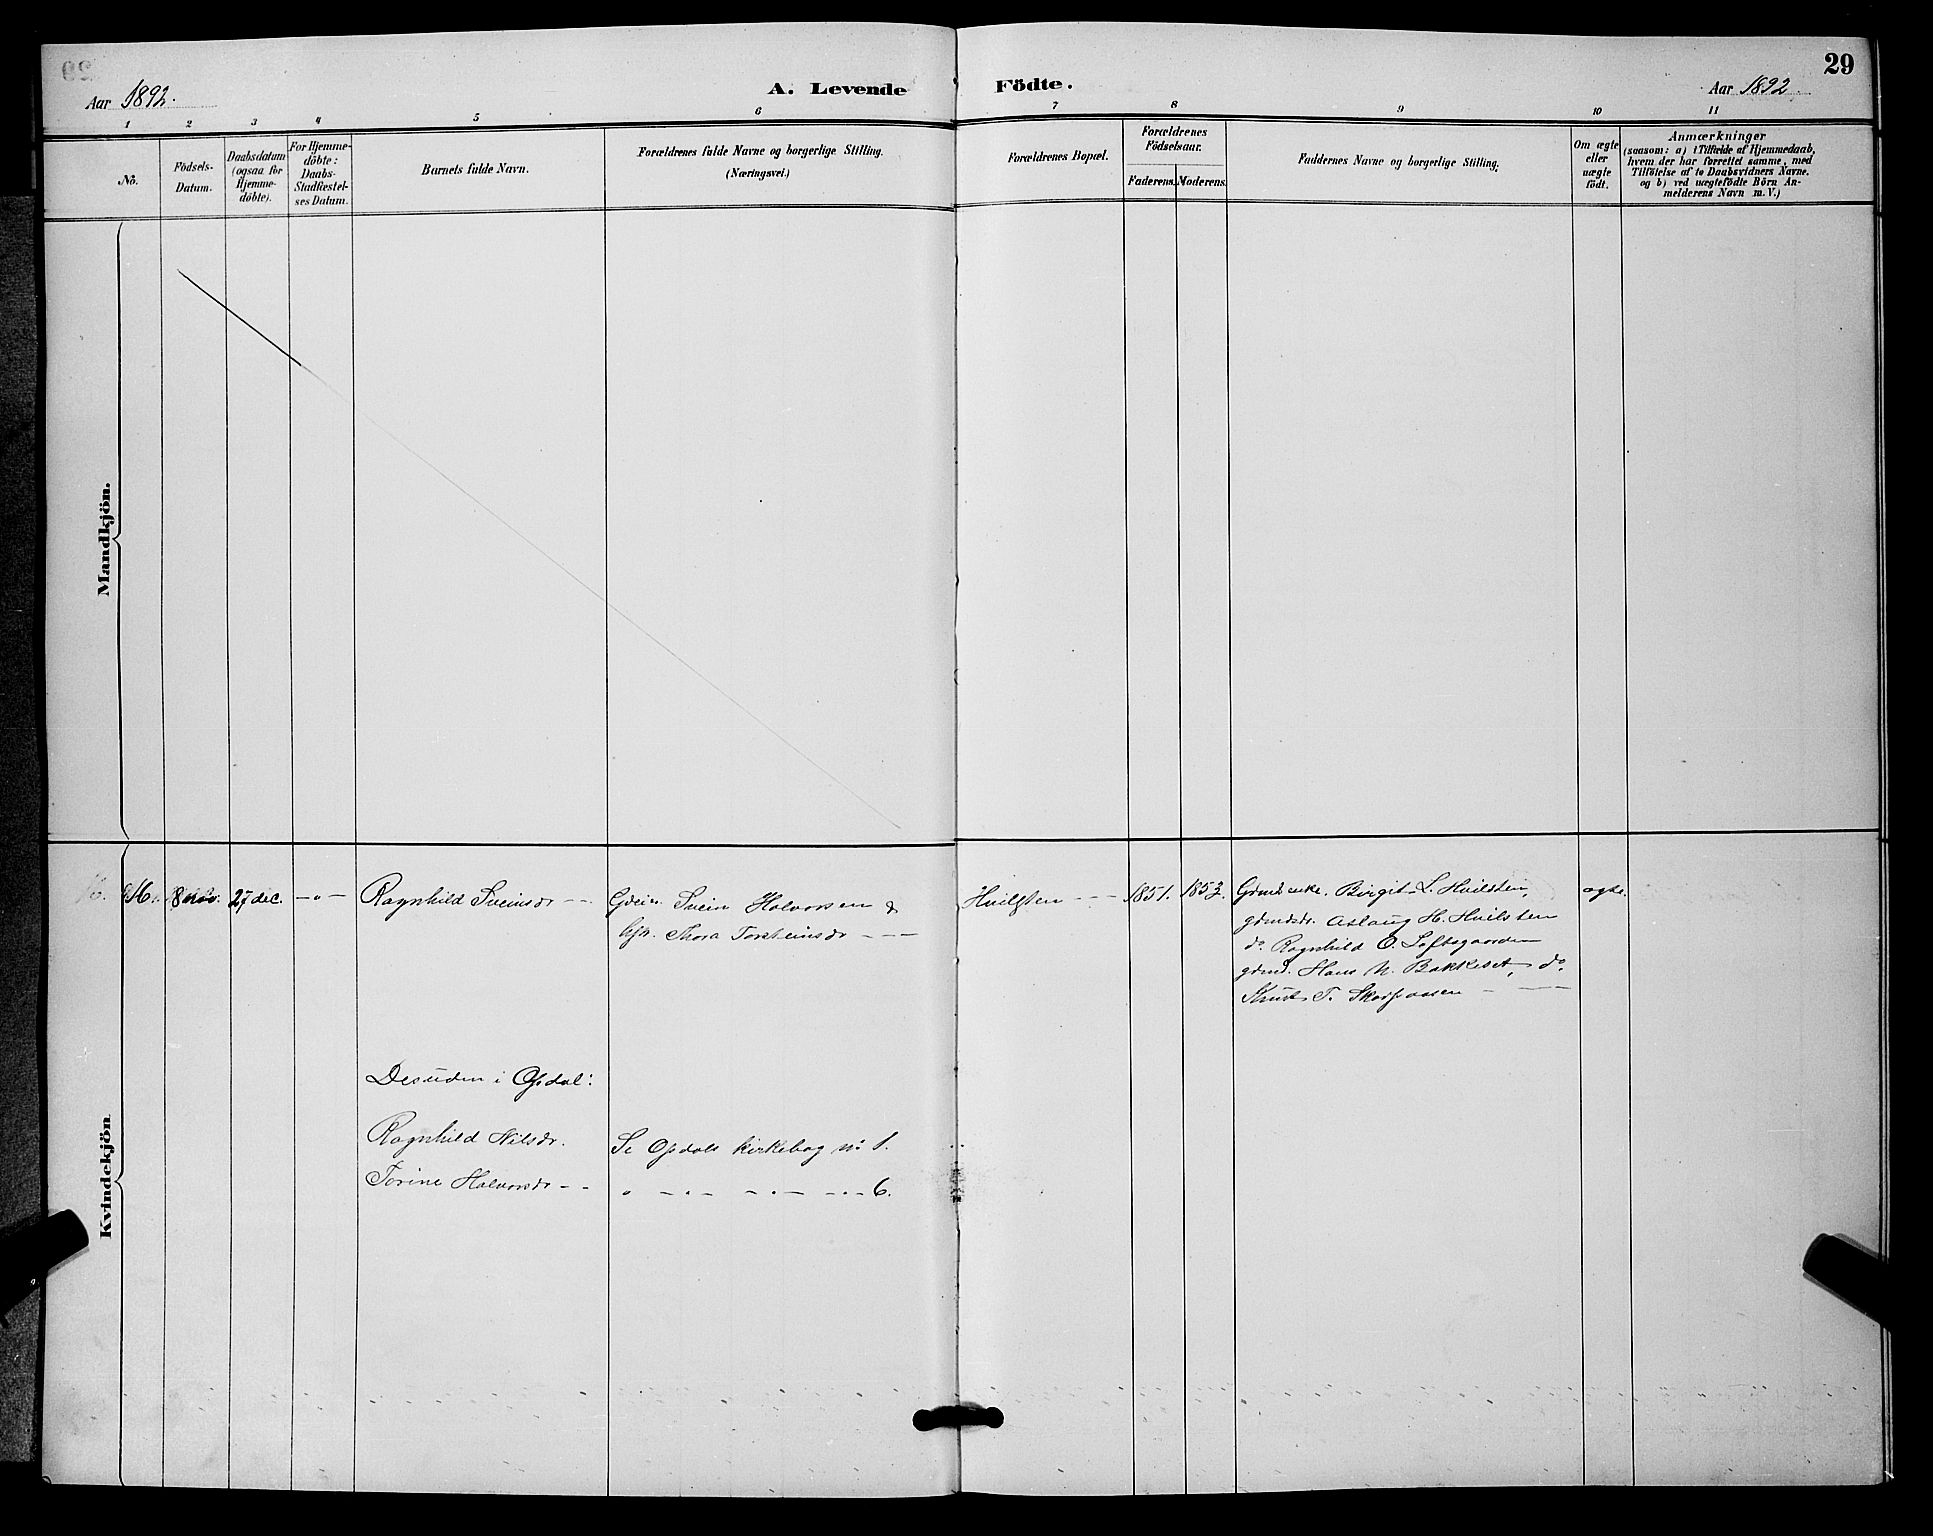 29
Aar 1892.
A. Levende Födte.
Aar 1892.
1 2 3 4 5 6 7 8 9 10 11
No.
Födsels-
Datum.
Daabsdatum
(ogsaa for
Hjemme-
döbte).
For Hjemme-
döbte:
Daabs-
Stadfæstel-
ses Datum.
Barnets fulde Navn.
Forældrenes fulde Navne og borgerlige Stilling.
(Næringsvei.)
Forældrenes Bopæl.
Forældrenes
Födselsaar.
Faderens. Moderens.
Faddernes Navne og borgerlige Stilling.
Om ægte
eller
uægte
födt.
Anmærkninger
(saasom: a) i Tilfælde af Hjemmedaab,
hvem der har forrettet samme, med
Tilföielse af to Daabsvidners Navne.
og b) ved uægtefödte Börn An-
melderens Navn m. V.)
Mandkjön.
Kvindekjön
16. 8 nov. 27 dec. -„- Ragnhild Sveinsdr -- Gdeier Svein Halvorsen & Hvilsten --- 1851. 1853. Birgit L. Hvilsten, ægte.
Thora Torsteinsdr ---
gdmdsdr. Aslaug H. Hvilsten
do. Ragnhild O. Loftsgaarden
gdmd. Hans N. Bakkeset, do.
Knut T. Skarpaasen - --
Desuden i Opdal:
Ragnhild Nilsdr. Se Opdals kirkebog no 1.
Torine Halvorsdr -- „ -„- -„- -„- 6.